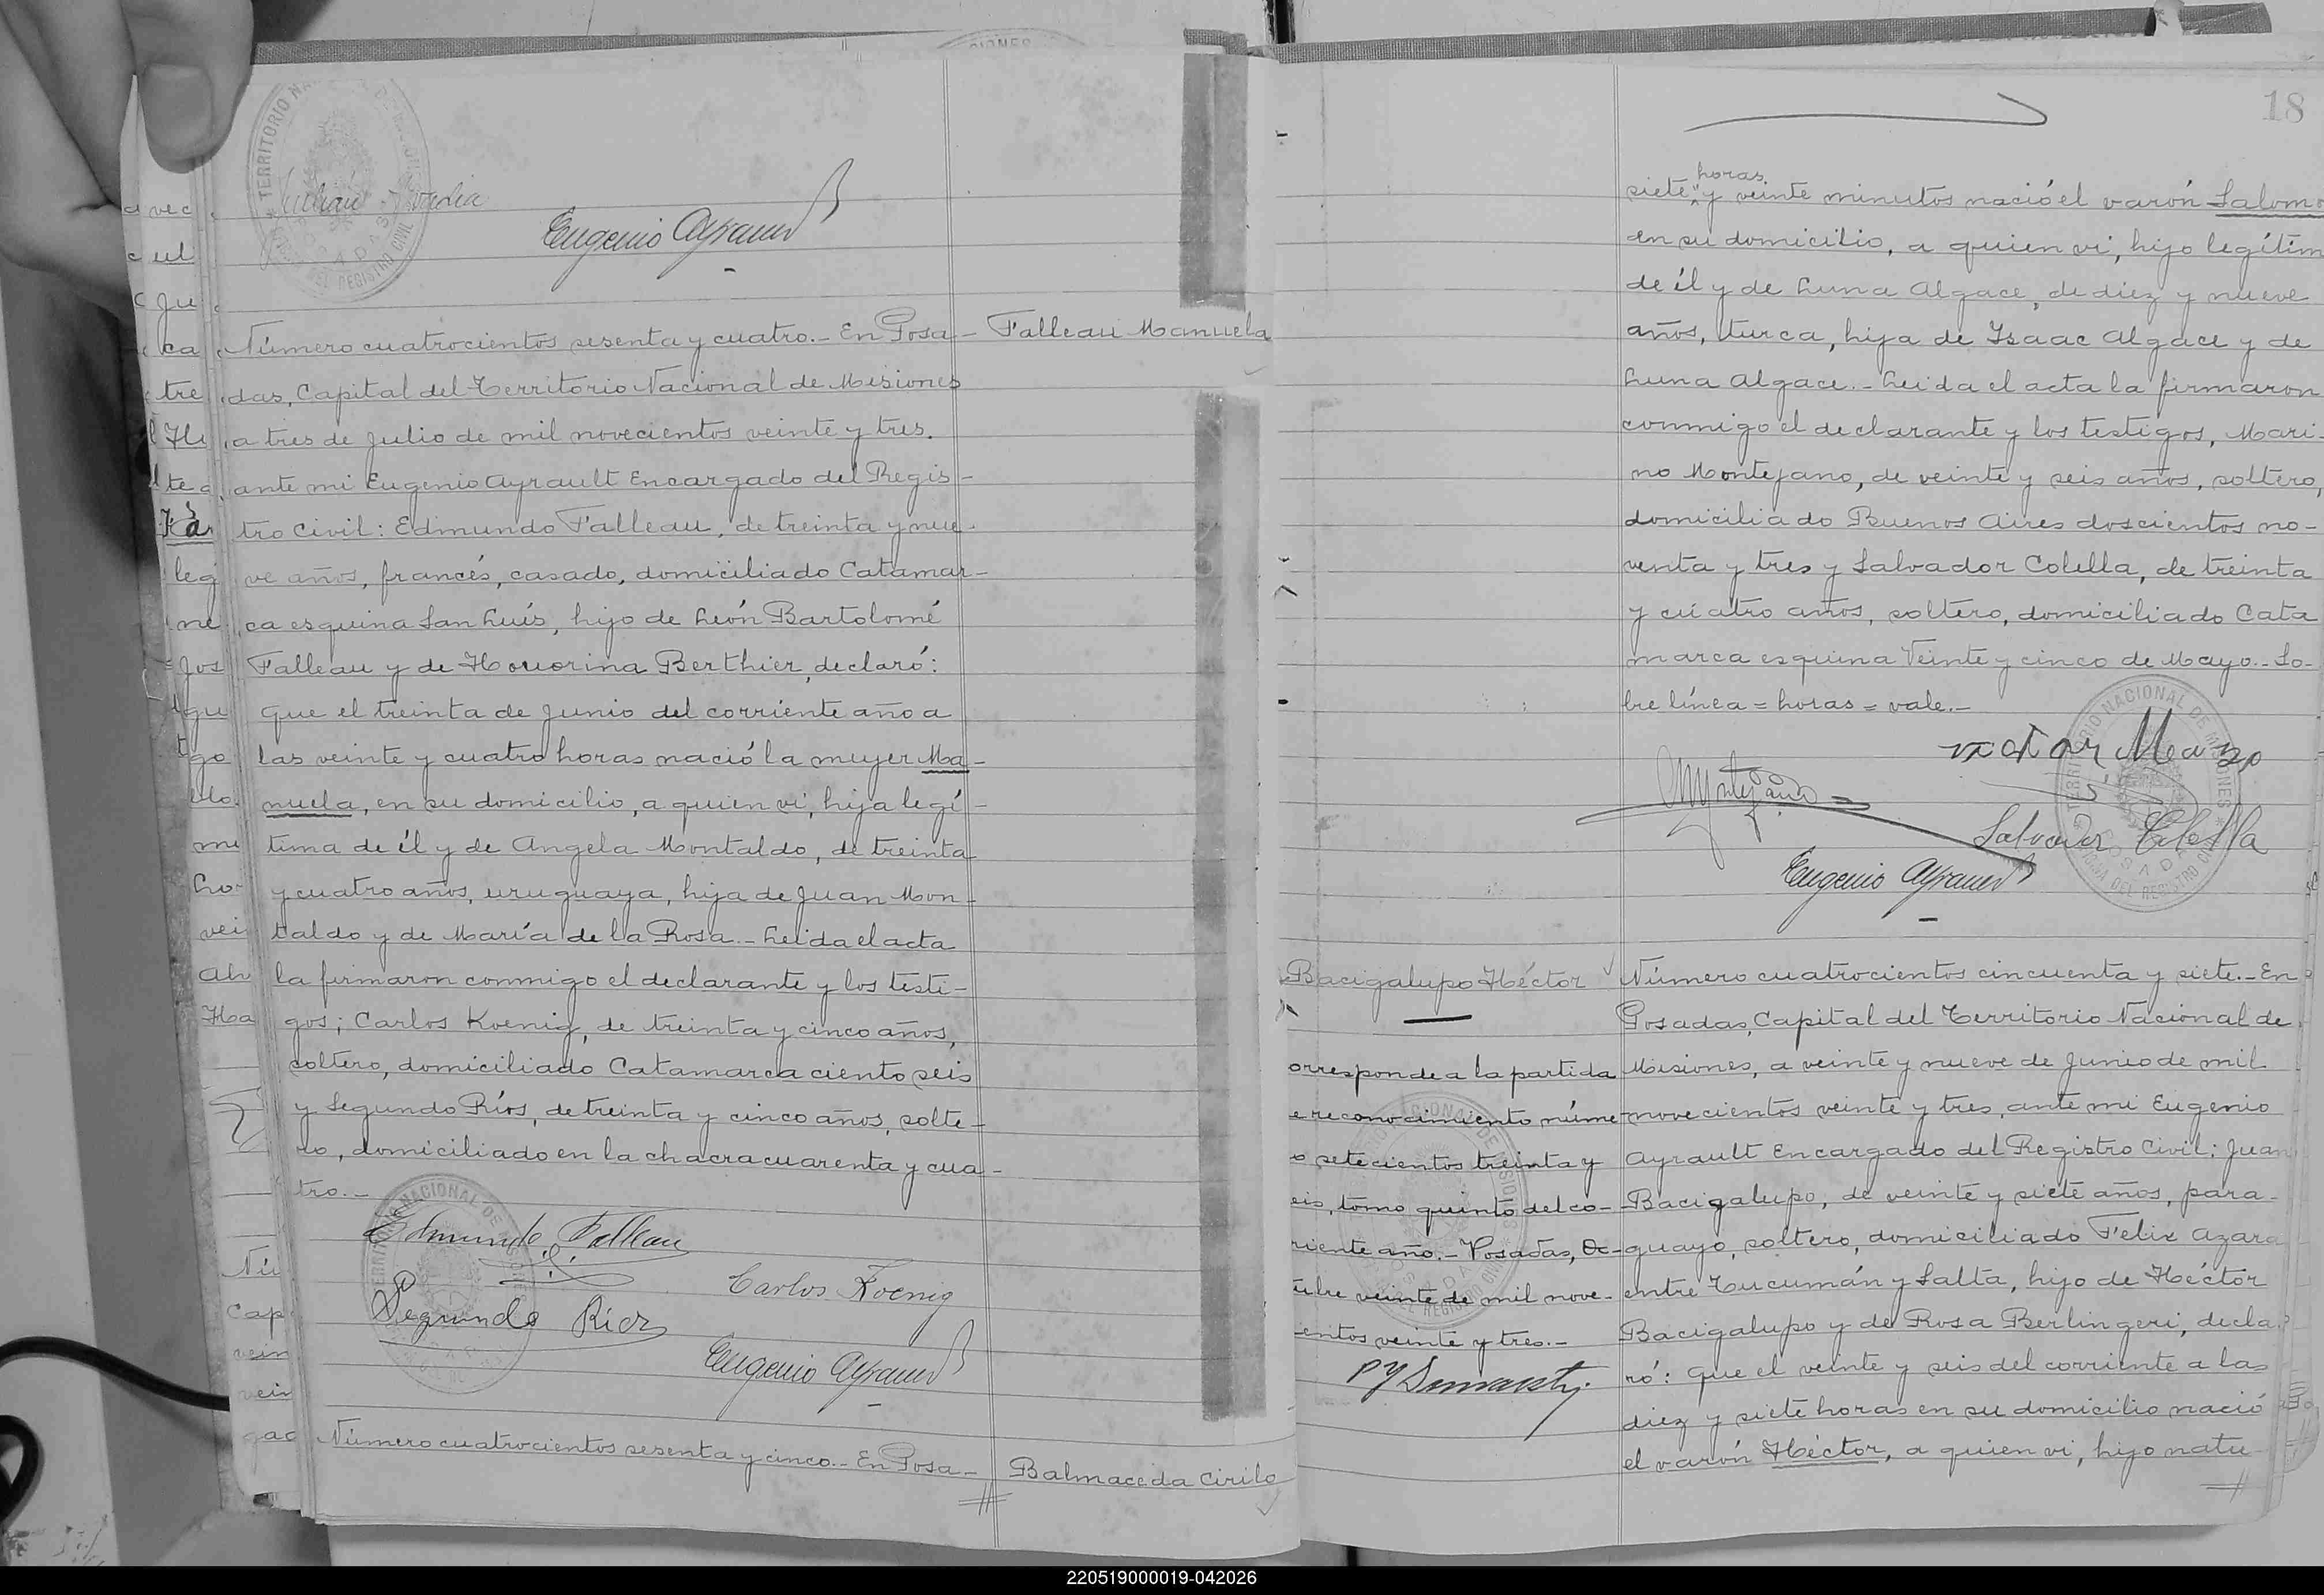 Julián
Eugenio Ayrault
Número cuatrocientos sesenta y cuatro.- En Posa-
Falleau Manuela
das, Capital del Territorio Nacional de Misiones
a tres de Julio de mil novecientos veinte y tres.
ante mi Eugenio Ayrault Encargado del Regis-
tro Civil: Edmundo Falleau, de treinta y nue-
ve años, francés, casado, domiciliado Catamar-
ca esquina San Luís, hijo de León Bartolomé
Falleau y de Honorina Berthier, declaró:
Que el treinta de Junio del corriente año a
las veinte y cuatro horas nació la mujer Ma-
nuela, en su domicilio, a quien vi, hija legí-
tima de él y de Angela Montaldo, de treinta
y cuatro años, uruguaya, hija de Juan Mon-
taldo y de María de la Rosa.- Leida el acta
la firmaron conmigo el declarante y los testi-
gos; Carlos Koenig, de treinta y cinco años,
soltero, domiciliado Catamarca ciento seis
y Segundo Ríos, de treinta y cinco años, solte-
ro, domiciliado en la chacra cuarenta y cua-
tro.-
Edmundo Falleau
Carlos Koenig
Segundo Ríos
Eugenio Ayrault
Número cuatrocientos sesenta y cinco.- En Posa-
Balmaceda Cirilo
18
horas
siete y veinte minutos nació el varón Salomo
en su domicilio, a quien vi, hijo legítim
de él y de Luna Algace, de diez y nueve
años, turca, hija de Isaac Algace y de
Luna Algace.- Leida el acta la firmaron
conmigo el declarante y los testigos, Mari-
no Montejano, de veinte y seis años, soltero,
domiciliado Buenos Aires doscientos no-
venta y tres y Salvador Colella, de treinta
y cuatro años, soltero, domiciliado Cata
marca esquina Veinte y cinco de Mayo.- So-
bre línea = horas = vale.-
Montejano
Salvador Colella
Eugenio Ayrault
Bacigalupo Héctor
Número cuatrocientos cincuenta y siete.- En
Posadas, Capital del Territorio Nacional de
Misiones, a veinte y nueve de Junio de mil
novecientos veinte y tres, ante mi Eugenio
Ayrault Encargado del Registro Civil; Juan
Bacigalupo, de veinte y siete años, para-
guayo, soltero, domiciliado Felix Azara
entre Tucumán y Salta, hijo de Héctor
Bacigalupo y de Rosa Berlingeri, decla
ró: Que el veinte y seis del corriente a las
diez y siete horas en su domicilio nació
el varón Héctor, a quien vi, hijo natu-
orresponde a la partida
e reconocimiento núme-
o setecientos treinta y
eis, tomo quinto del co-
rriente año.- Posadas, Oc-
tubre veinte de mil nove-
cientos veinte y tres.-
220519000019-042026